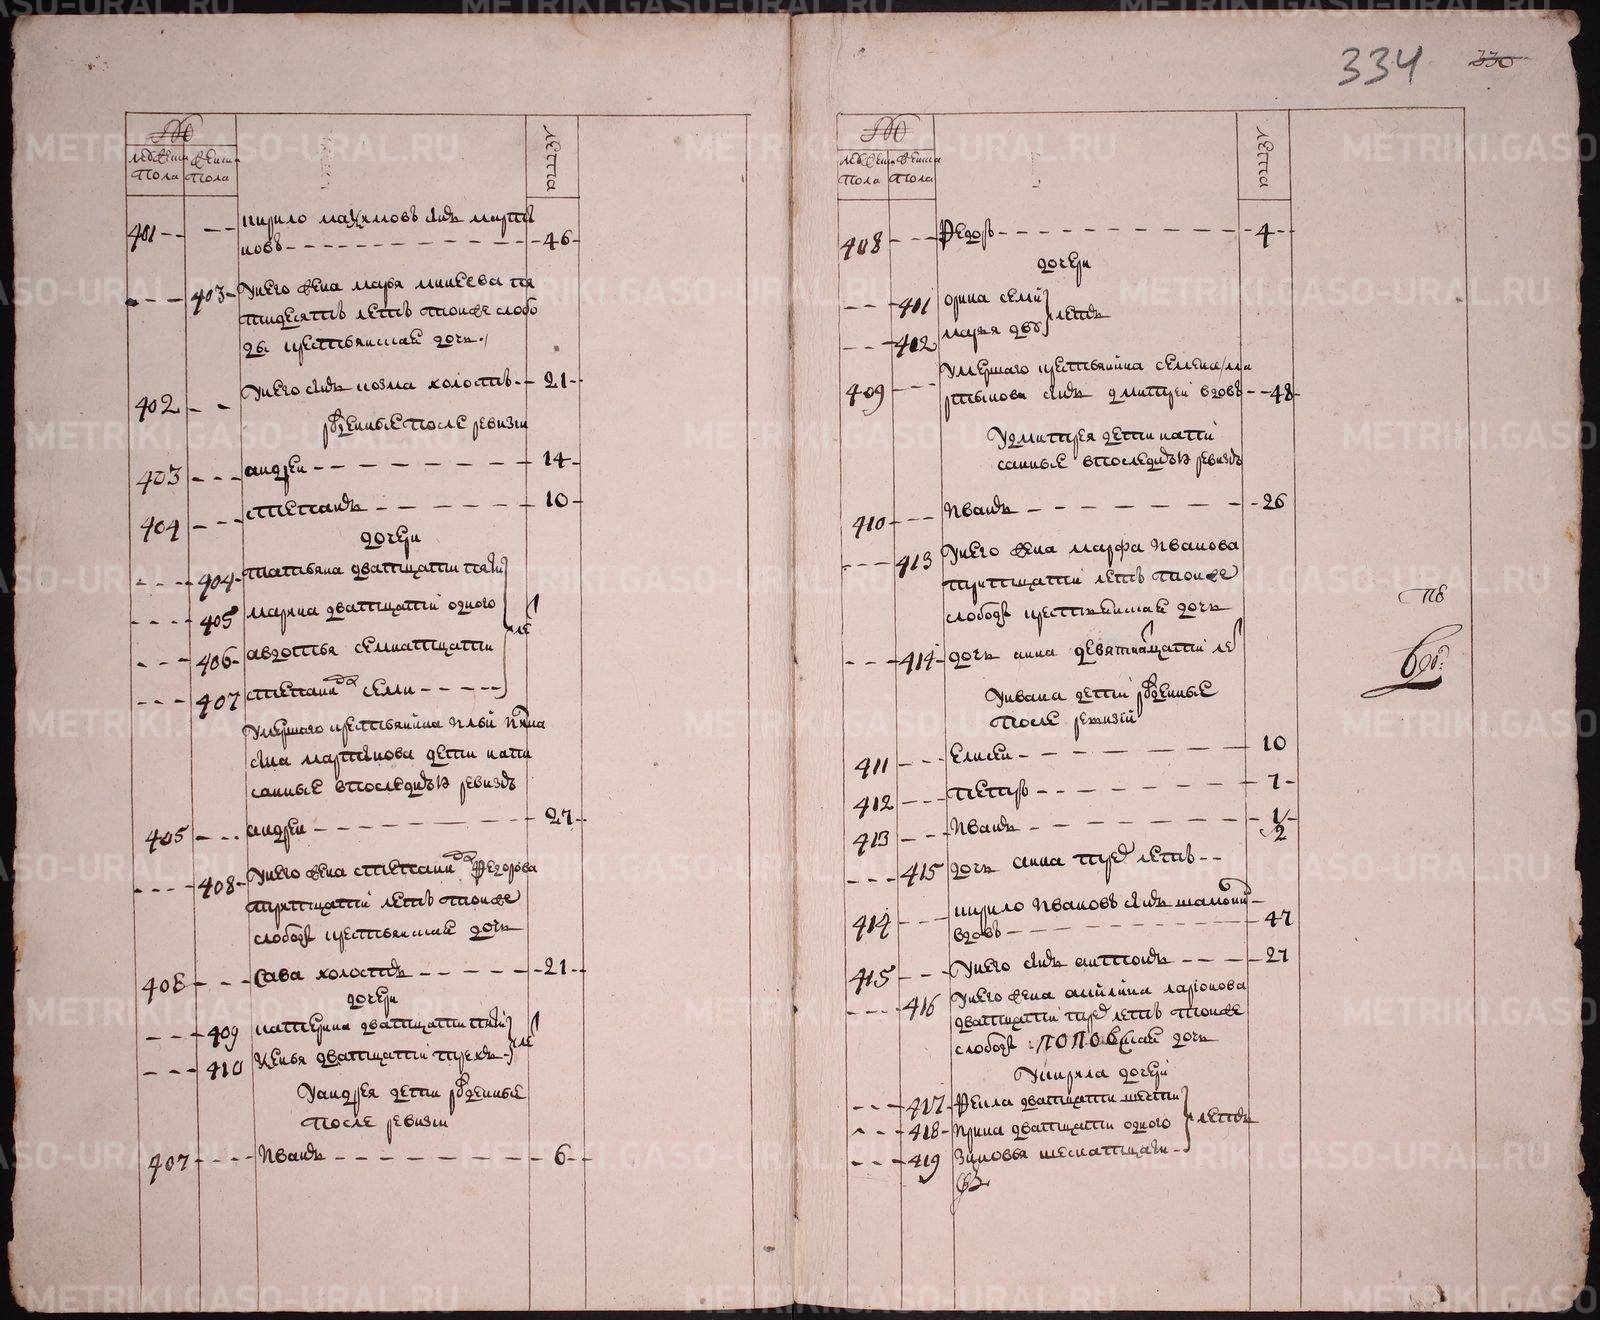 334 330
№
мужеска пола
женска пола
лета
401 -- --
кирило маѯимовъ сынъ марты
новъ - 46 -
403 - у него жена марья минеева пя
тидесятъ летъ тои же слобо
ды крестьянская дочь
402 -- у него сынъ козма холостъ -- 21 -
рожденные после ревизии
403 --- андреи - 14 -
404 --- степанъ - 10 -
дочери
404 - татьяна дватцати пяти
405 марина дватцати одного
406 - авдотья семнатцати
407 степанида семи
ле
умершаго крестьянина ильи
сына мартынова дети напи
санные в последнюю ревизию
405 --- андреи - 27 -
408 - у него жена степанида федорова
тритцати летъ тои же
слободы крестьянская дочь
406 --- сава холостъ - 21 -
дочери
409 катерина дватцати пяти
410 дватцати трехъ -
ле
у андрея дети рожденные
после ревизии
407 ---- иванъ - 6 -
№
мужеска пола
женска пола
лета
408 --- федоръ - 4 --
дочери
401 орина семи
402 марья дву
летъ
умершаго крестьянина семена ма
409 --- ртынова сынъ дмитреи вдовъ - 48 -
у дмитрея дети напи
санные в последнюю ревизию
410 --- иванъ - 26
413 у него жена марфа иванова
тритцати летъ тои же
слободы крестьянская дочь
414 - дочь анна девятнатцати ле
у ивана дети рожденные
после ревизии
411 --- елисеи - 10
412 --- петръ - 7 -
413 --- иванъ - 1/2
415 дочь анна трех летъ --
кирило ивановъ сынъ
414 --- вдовъ - 47
415 --- у него сынъ антонъ - 27
416 у него жена акилина ларионова
дватцати трех летъ тои же
слободы поповская дочь
у кирила дочери
417 - фекла дватцати шести
418 - ирина дватцати одного
419 зиновья шеснатцати -
летъ